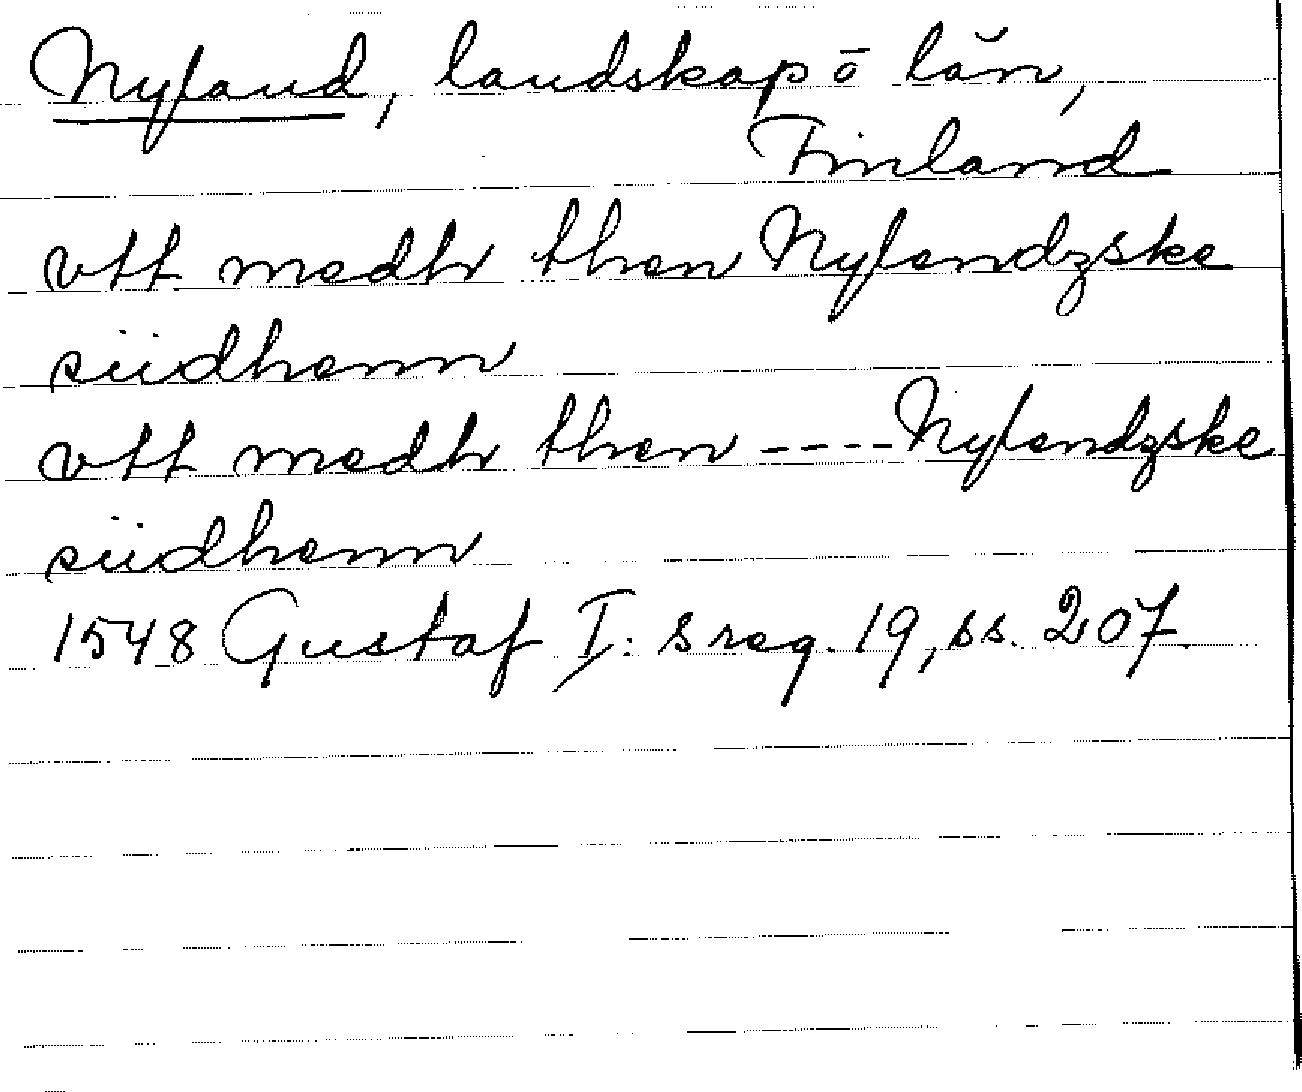 Nyland, landskap ō län,
Finland
vtt medh then Nylendzske
siidhenn
vtt medh then ---- Nylendzske
siidhenn
1548 Gustaf I:s reg. 19, ss. 207